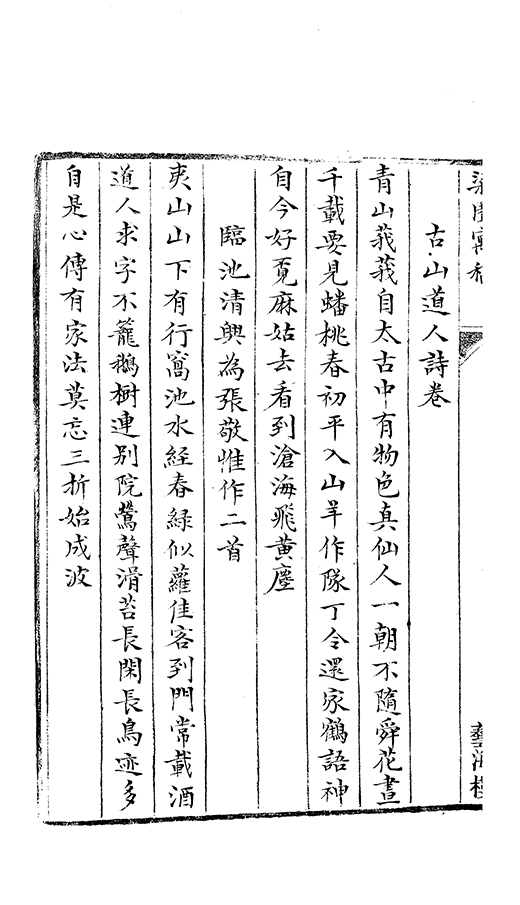 梁園寓稿
藝海樓
古山道人詩卷
青山莪莪自太古中有物色真仙人一朝不隨舜花晝
千載要見蟠桃春初平入山羊作隊丁令還家鶴語神
自今好覓麻姑去看到滄海飛黃塵
臨池清興為張敬惟作二首
夷山山下有行窩池水經春綠似蘿佳客到門常載酒
道人求字不籠鵝樹連別院鶯聲滑苔長閑長鳥迹多
自是心傳有家法莫忘三折始成波